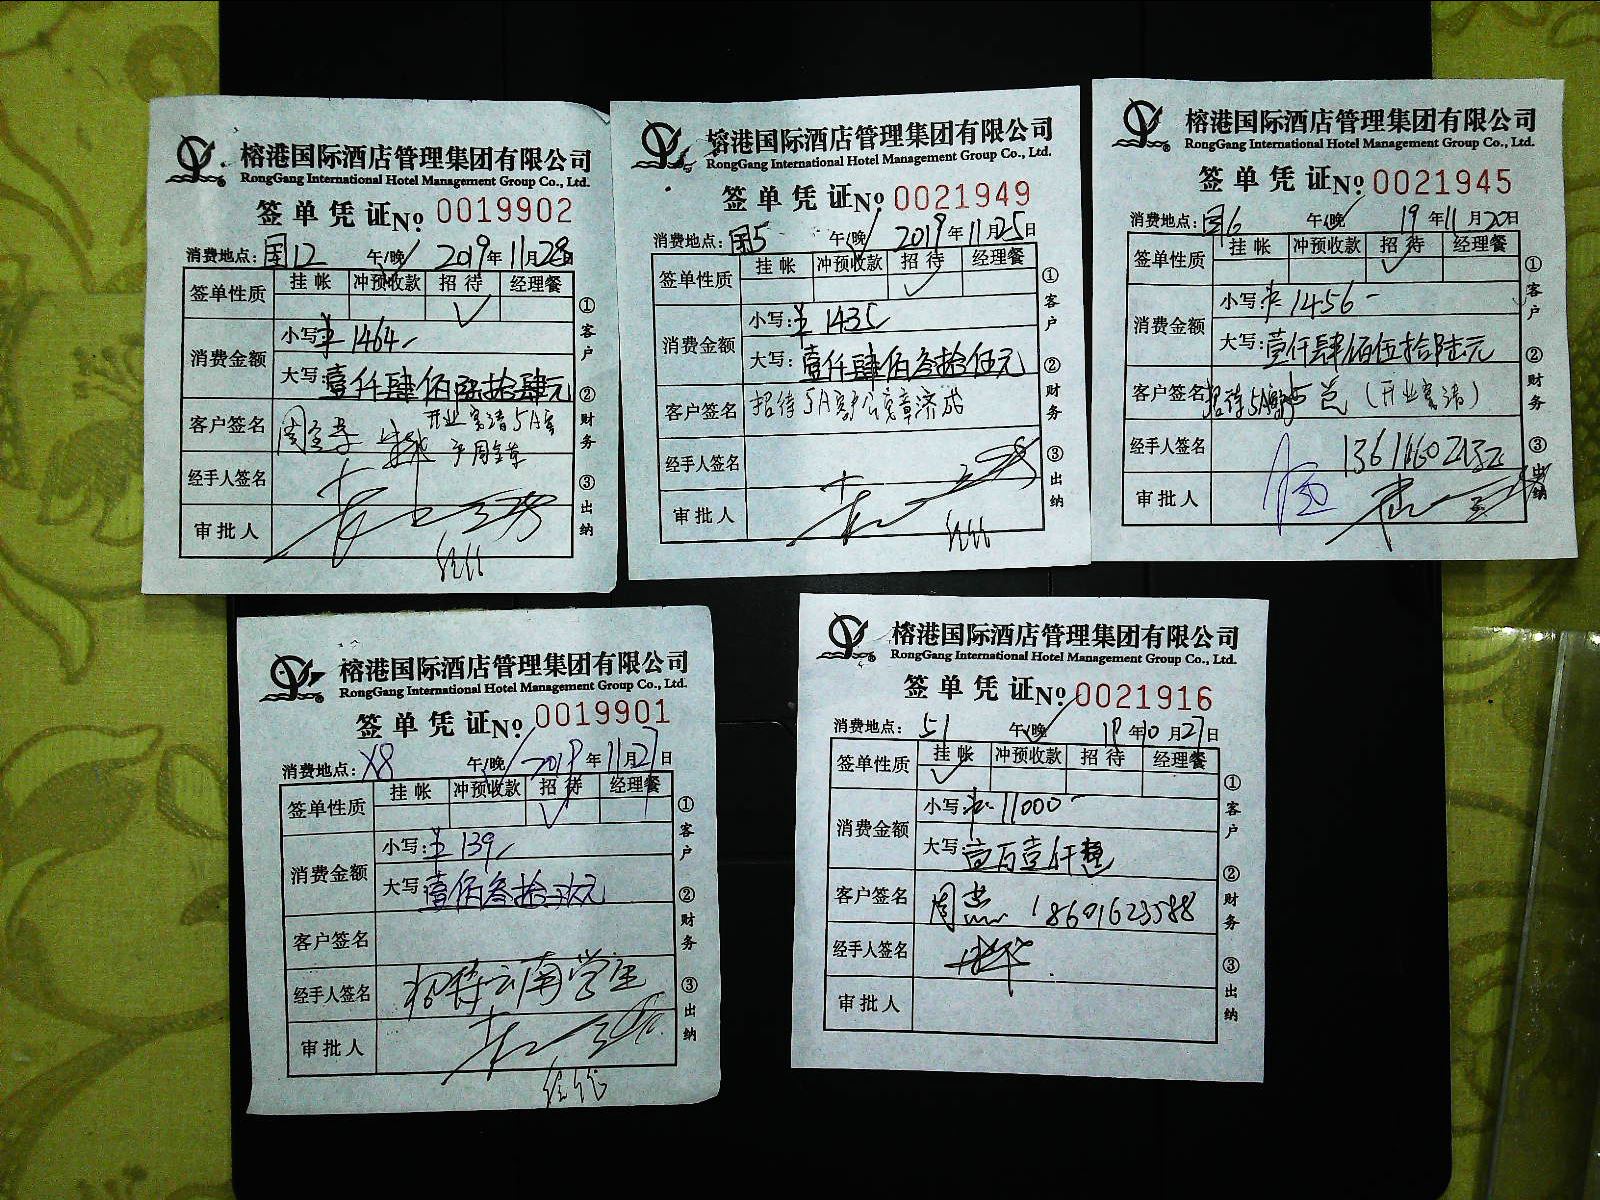 榕港国际酒店管理集团有限公司
RongGang International Hotel Management Group Co., Ltd.
签单凭证 No 0019902
消费地点: 国12 午/晚 2019年11月28日
签单性质 挂帐 冲预收款 招待 经理餐
消费金额
小写: ¥1464
大写: 壹仟肆佰陆拾肆元
客户签名
开业宴请5A
经手人签名
审批人
①客户 ②财务 ③出纳
榕港国际酒店管理集团有限公司
RongGang International Hotel Management Group Co., Ltd.
签单凭证 No 0021949
消费地点: 国5 午/晚 2019年11月25日
签单性质 挂帐 冲预收款 招待 经理餐
消费金额
小写: ¥1435
大写: 壹仟肆佰叁拾伍元
客户签名 招待5A
经手人签名
审批人
①客户 ②财务 ③出纳
榕港国际酒店管理集团有限公司
RongGang International Hotel Management Group Co., Ltd.
签单凭证 No 0021945
消费地点: 国6 午/晚 19年11月20日
签单性质 挂帐 冲预收款 招待 经理餐
消费金额
小写: ¥1456-
大写: 壹仟肆佰伍拾陆元
客户签名 招待5A (开业宴请)
经手人签名
审批人
①客户 ②财务 ③出纳
榕港国际酒店管理集团有限公司
RongGang International Hotel Management Group Co., Ltd.
签单凭证 No 0019901
消费地点: X8 午/晚 2019年11月27日
签单性质 挂帐 冲预收款 招待 经理餐
消费金额
小写: ¥139
大写: 壹佰叁拾玖元
客户签名
经手人签名 招待云南学生
审批人
①客户 ②财务 ③出纳
榕港国际酒店管理集团有限公司
RongGang International Hotel Management Group Co., Ltd.
签单凭证 No 0021916
消费地点: 51 午/晚 19年10月27日
签单性质 挂帐 冲预收款 招待 经理餐
消费金额
小写: ¥11000-
大写: 壹万壹仟整
客户签名 18601623588
经手人签名
审批人
①客户 ②财务 ③出纳